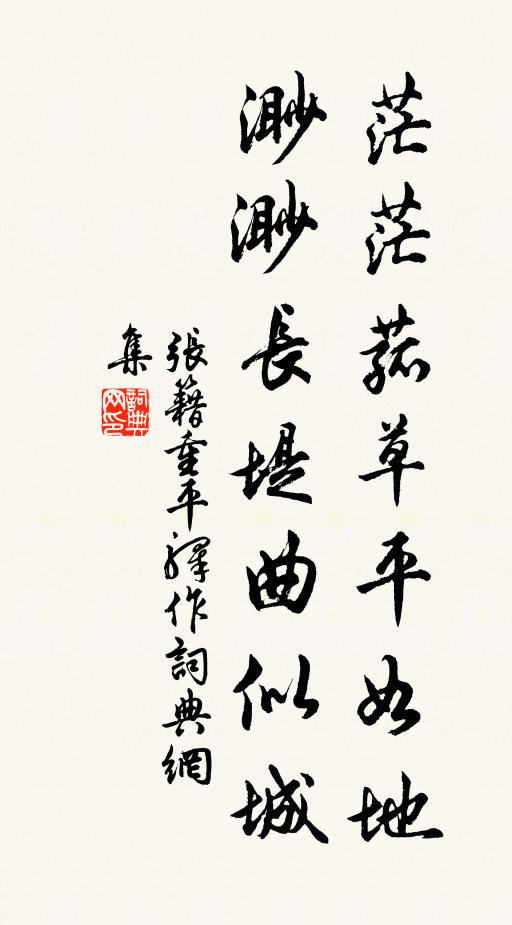 茫茫菰草平如地
渺渺長堤曲似城
張籍重平驛作詞典網
集
詞典網印